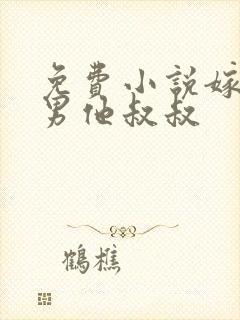 免費小說嫁
男他叔叔
鶴樵